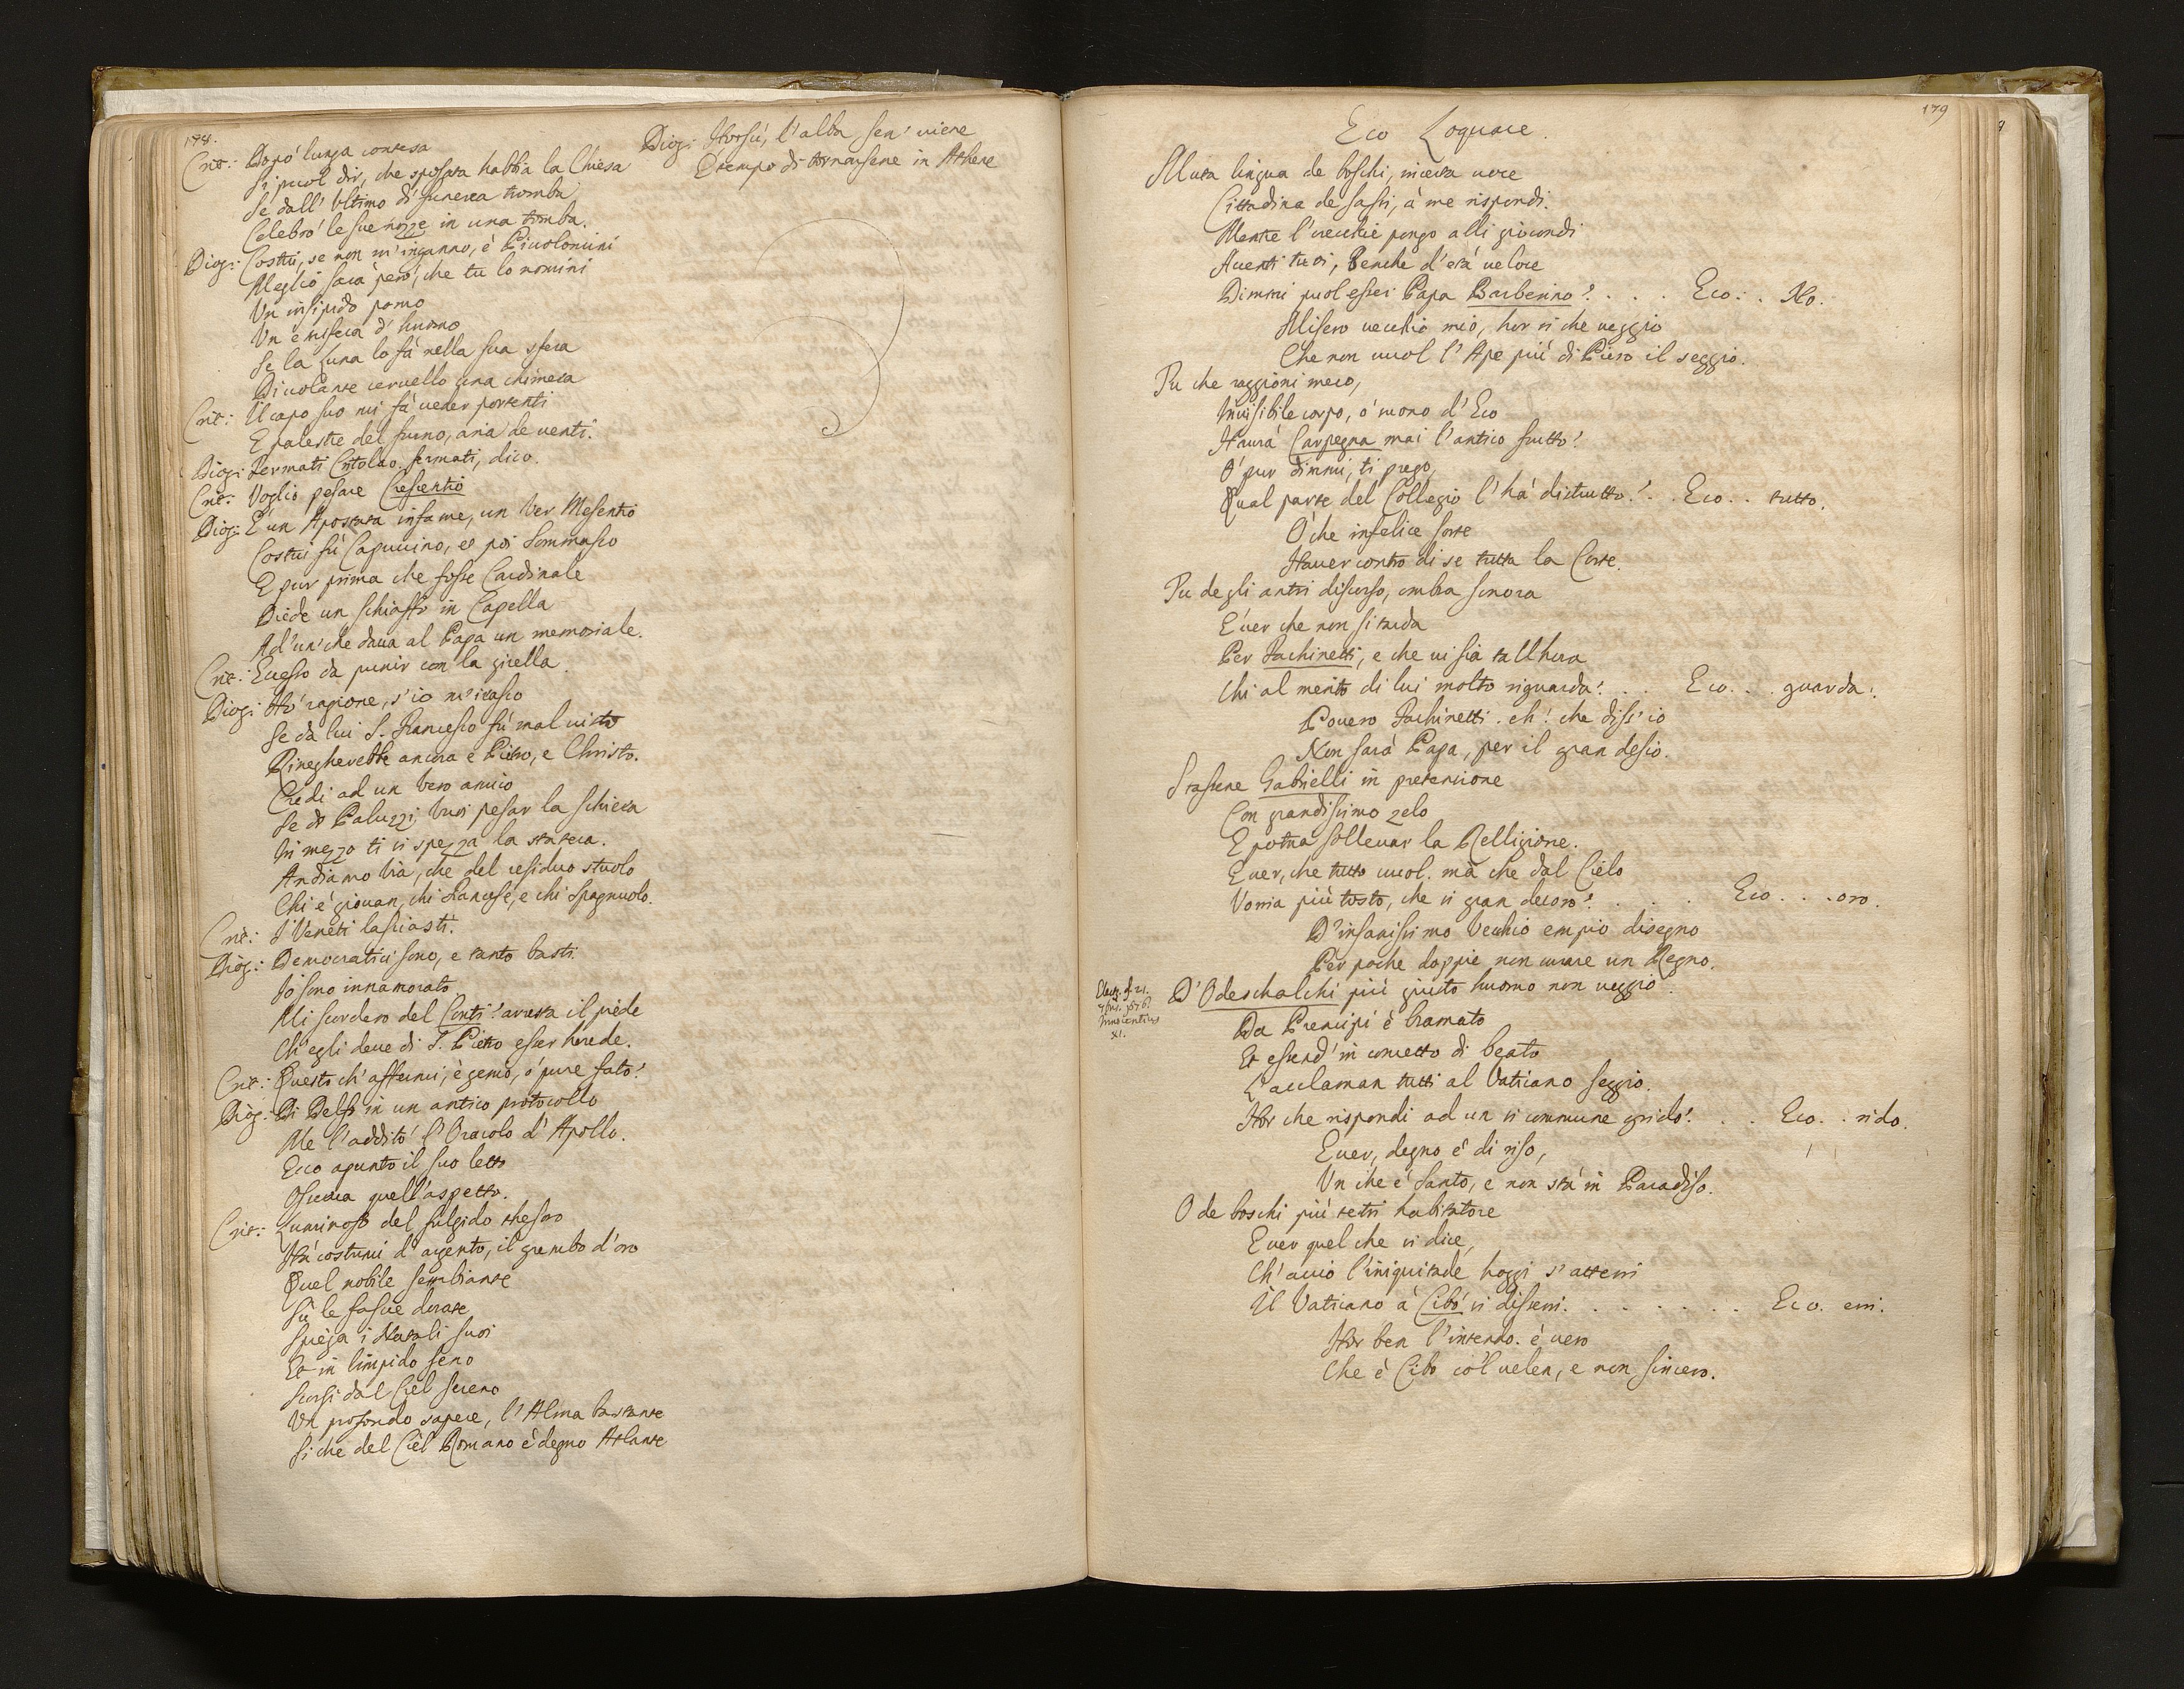 178.
Crit: Dopò lunga contesa
Si puol dir, che sposata habbia la Chiesa
Se dall' Ultimo dì funerea tromba
Celebrò le sue nozze in una tomba.
Diog: Costui, se non m'inganno, è Picolomini
Meglio sarà però, che tu lo nomini
Un insipido pomo
Un emisera d' huomo
Se la Luna lo fà nella sua sfera
Di volante cervello una chimera
Crit: Il capo suo mi fà veder portenti
E palestre del fumo, aria de venti.
Diog: Fermati Critolao, fermati, dico.
Crit: Voglio pesare Crescentio
Diog: È un Apostata infame, un Ver Mesentio
Costui fù Capuccino, et poi Sommasco
E pur prima che fosse Cardinale
Diede un schiaffo in Capella
Ad' un' che dava al Papa un memoriale.
Crit: Eccesso da punir con la girella.
Diog: Hò ragione, s'io m'irasco
Se da lui S. Francesco fù mal visto
Rinegherebbe ancora e Pietro, e Christo.
Credi ad un Vero amico
Se di Paluzzi, Vuoi pesar la schiera
In mezzo ti si spezza la statera.
Andiamo Via, che del residuo stuolo
Chi è giovan, chi francese, e chi Spagnuolo.
Crit: I Veneti lasciasti.
Diog: Democratici sono, e tanto basti.
Io sono innamorato
Mi scordero del Conti? arresta il piede
Ch'egli deve di S. Pietro esser herede.
Crit: Questo ch'affermi, è genio, ò pure fato?
Diog: Di Delfo in un antico protocollo
Me l'additò l'Oracolo d'Apollo.
Ecco apunto il suo letto
Osserva quell'aspetto.
Crit: Luminoso del fulgido thesoro
Hà costumi d'argento, il grembo d'oro
Quel nobile sembiante
Sù le fascie dorate
Spiega i Natali suoi
Et in limpido seno
Scorsi dal Ciel sereno
Un profondo sapere, l'Alma bastante
Si che del Ciel Romano è degno Atlante
Diog: Horsù, l'alba sen' viene
È tempo di tornarsene in Athene
179
Eco Loquace.
Muta lingua de boschi, incerta voce
Cittadina de sassi, à me rispondi.
Mentre l'orecchie porgo alli giocondi
Accenti tuoi, Benche d'età veloce
Dimmi puol esser Papa Barberino? . . . Eco. . No.
Misero vecchio mio, hor si che veggio
Che non vuol l'Ape più di Piero il seggio.
Tu che raggioni meco,
Invisibile corpo, ò suono d'Eco
Haurà Carpegna mai l'antico frutto?
O' pur dimmi, ti prego,
Qual parte del Collegio l'hà distrutto? . . Eco. . tutto.
O' che infelice sorte
Haver contro di se tutta la Corte.
Tu degli antri discorso, ombra sonora
È ver che non si tarda
Per Fachinetti, e che vi sia tall'hora
Chi al merito di lui molto riguarda? . . Eco. . . guarda.
Povero Fachinetti. eh! che diss'io
Non sarà Papa, per il gran desio.
Stassene Gabrielli in pretensione
Con grandissimo zelo
E potria sollevar la Relligione.
È ver, che tutto vuol. mà che dal Cielo
Vorria più tosto, che si gran decoro? . . . Eco . . . oro.
D'insanissimo Vecchio empio disegno
Per poche doppie non curare un Regno.
Elect. d. 21.
7bris. 1676.
Innocentius
XI.
D'Odeschalchi più giusto huomo non veggio
Da Prencipi è bramato
Et essend' in concetto di beato
L'acclaman tutti al Vaticano seggio.
Hor che rispondi ad un si commune grido? . . Eco. . rido.
È ver, degno è di riso,
Un che è Santo, e non stà in Paradiso.
O de boschi più tetri habitatore
È ver quel che si dice,
Ch'acciò l'iniquitade hoggi s'atterri
Il Vaticano à Cibò si disserri. . . . . . . Eco. erri.
Hor ben l'intendo. è vero
Che è Cibo co'l velen, e non sincero.